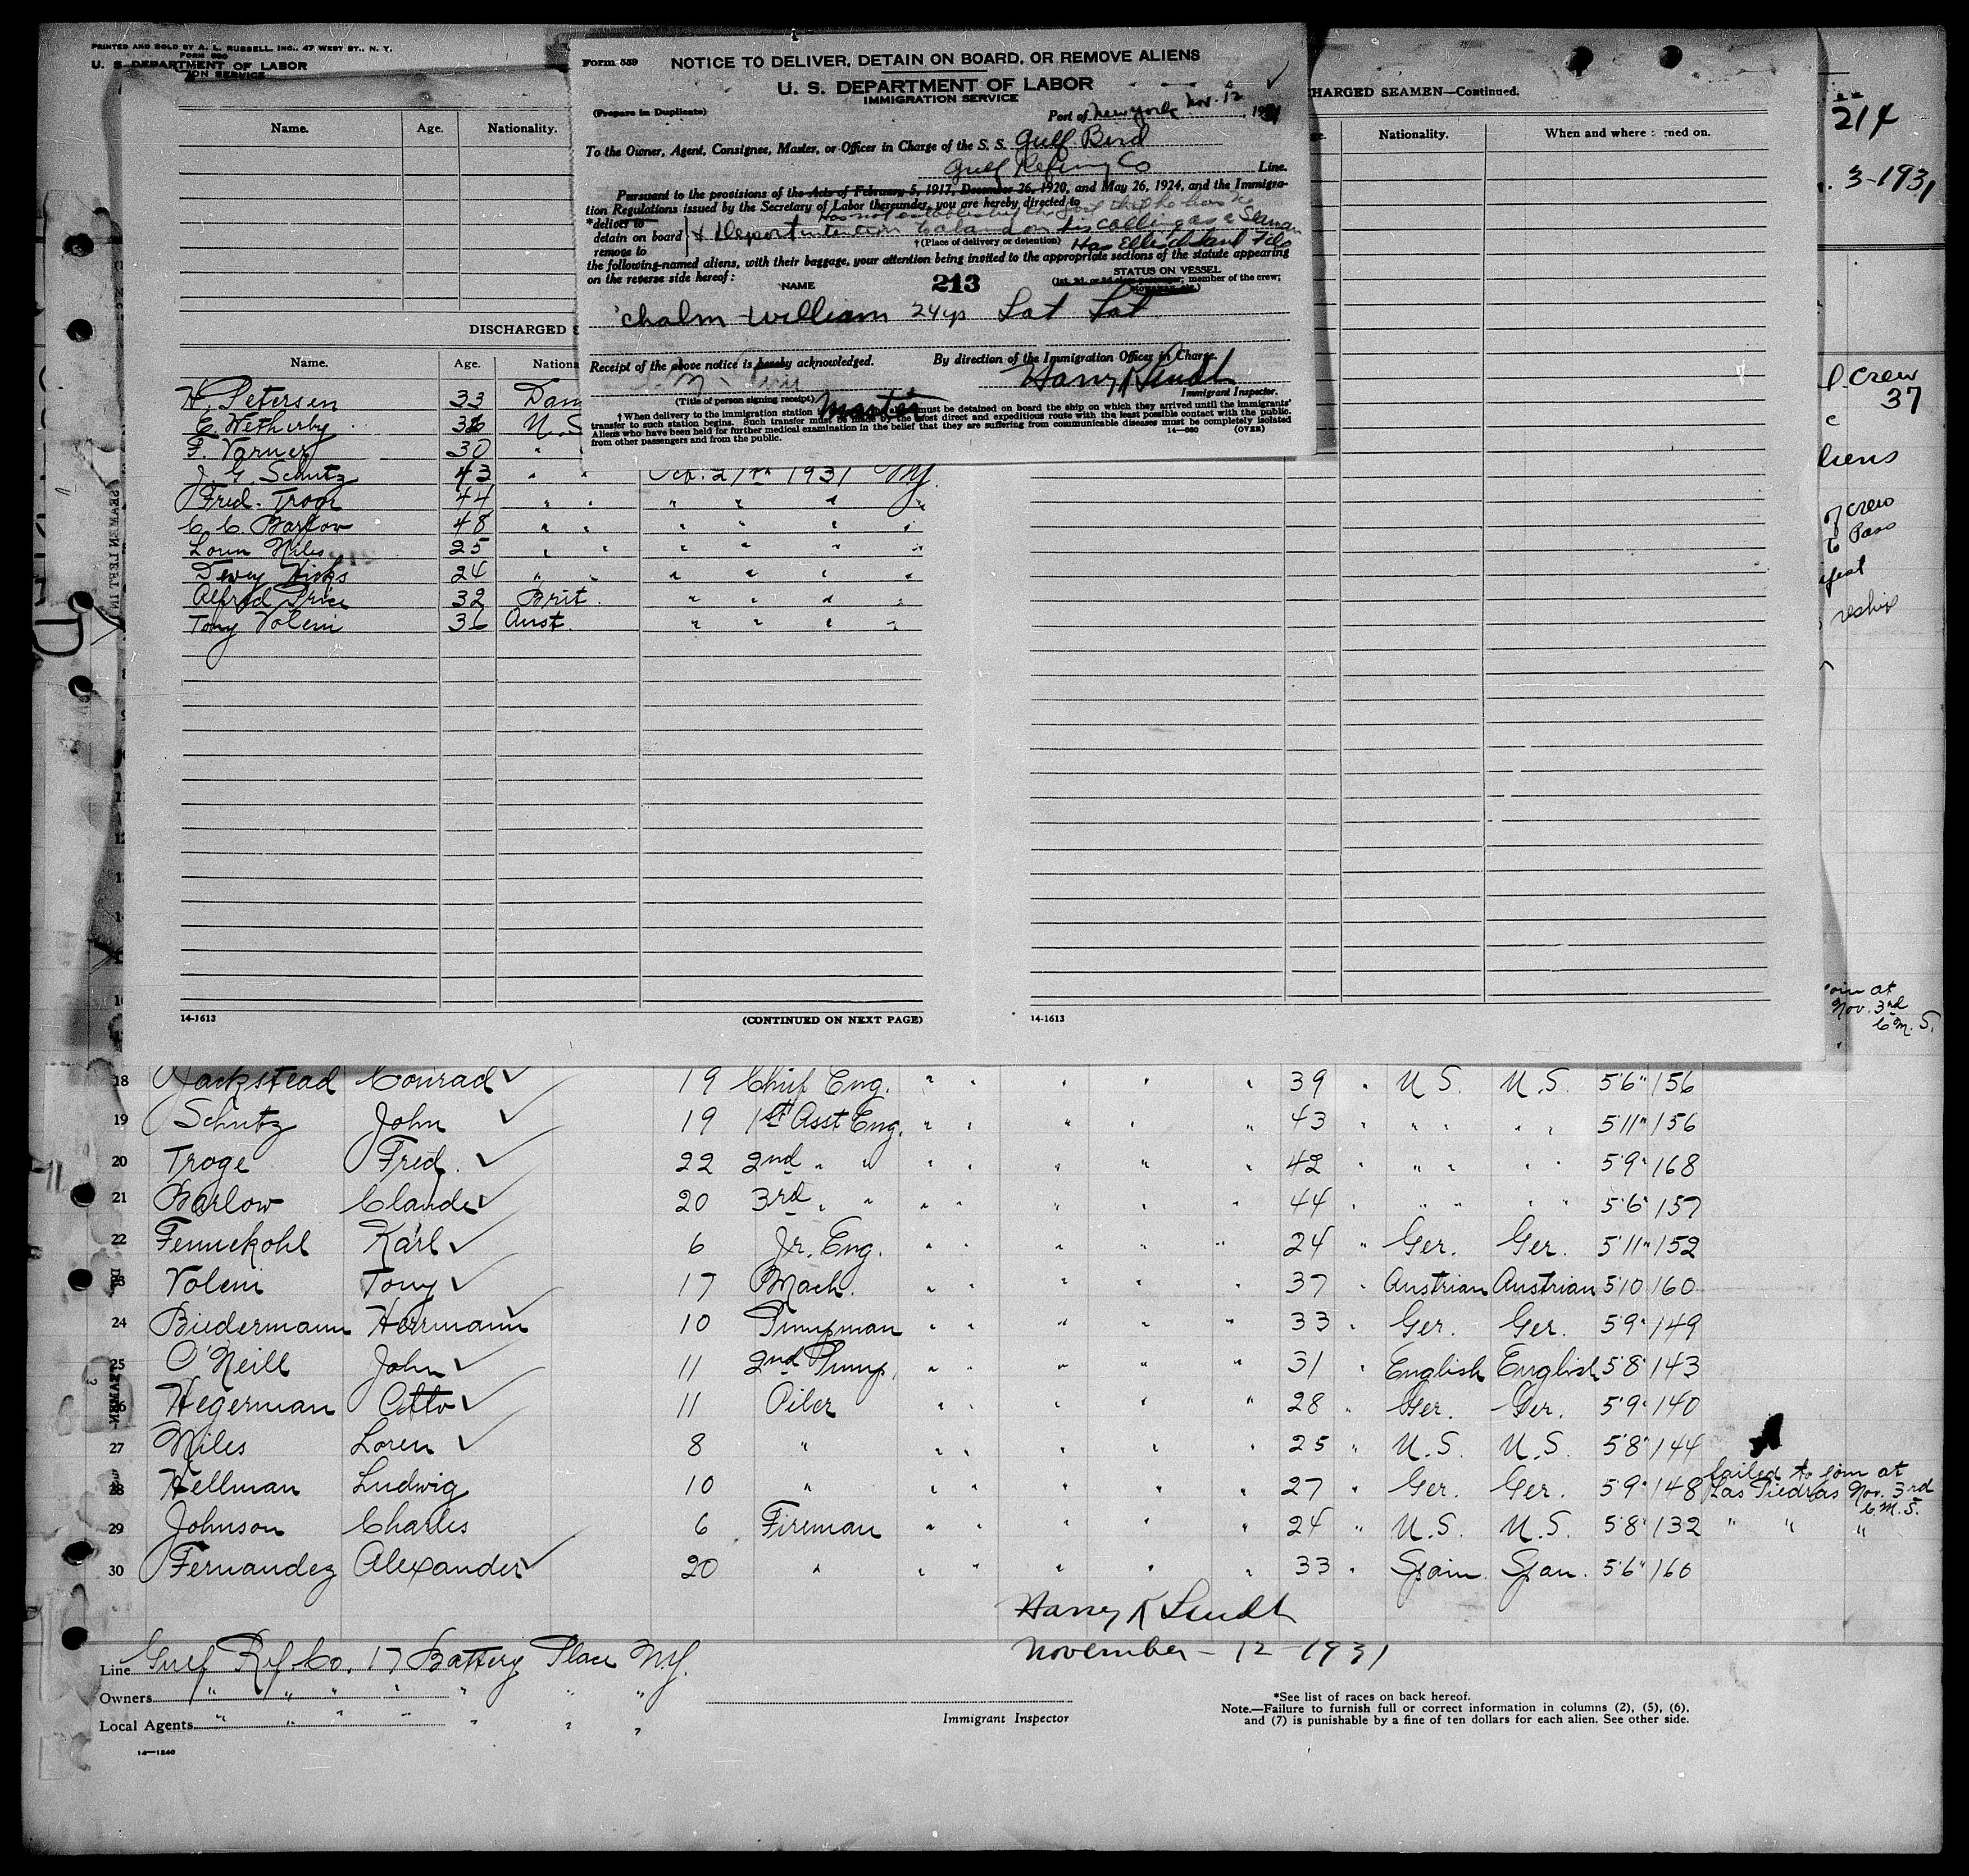 PRINTED AND SOLD BY A. L. RUSSELL, INC., 47 WEST ST., N. Y.
FORM 680
U. S. DEPARTMENT OF LABOR
ION SERVICE
Form 559
NOTICE TO DELIVER, DETAIN ON BOARD, OR REMOVE ALIENS
U. S. DEPARTMENT OF LABOR
IMMIGRATION SERVICE
(Prepare in Duplicate)
Port of New York Nov. 12, 1931
To the Owner, Agent, Consignee, Master, or Officer in Charge of the S. S. Gulf Bird
Gulf Refining Co Line.
Pursuant to the provisions of the Acts of February 5, 1917, December 26, 1920, and May 26, 1924, and the Immigra-
tion Regulations issued by the Secretary of Labor thereunder, you are hereby directed to
Has not established the that he has no
*deliver to
detain on board
remove to
+ Deport intention to land on his calling as a Seaman
†(Place of delivery or detention) Has Ellis Island File
the following-named aliens, with their baggage, your attention being invited to the appropriate sections of the statute appearing
on the reverse side hereof:
STATUS ON VESSEL
NAME 213 member of the crew;
chalm William 24 yrs Lat Lat
Receipt of the above notice is hereby acknowledged. By direction of the Immigration Officer in Charge.
Harry K Lindt
(Title of person signing receipt) Master Immigrant Inspector.
†When delivery to the immigration station must be detained on board the ship on which they arrived until the immigrants'
transfer to such station begins. Such transfer must be made by the most direct and expeditious route with the least possible contact with the public.
Aliens who have been held for further medical examination in the belief that they are suffering from communicable diseases must be completely isolated
from other passengers and from the public.
14—680 (OVER)
Name. Age. Nationality.
HARGED SEAMEN—Continued.
ge. Nationality. When and where : ned on.
214
3-1931
DISCHARGED S
Name. Age. Nationa
H. Petersen 33 Dan
C. Wetherby 36 U.S
F. Varner 30 "
J. G. Schutz 43 " " Oct. 21st 1931 NY.
Fred. Troge 44 " " " " " "
C. C. Barlow 48 " " " " " "
Loren Niles 25 " " " " " "
Dewey Hicks 24 " " " " " "
Alfred Price 32 Brit. " " " "
Tony Voleni 36 Aust. " " " "
l Crew
37
e
liens
of crew
to Pass
ifest
14-1613 (CONTINUED ON NEXT PAGE) 14-1613
oin at
Nov. 3rd
C.M.S.
18 Jackstead Conrad 19 Chief Eng. " " " " " 39 " U.S. U.S. 5'6" 156
19 Schutz John 19 1st Asst Eng. " " " " " 43 " " " " " 5'11" 156
20 Troge Fred. 22 2nd " " " " " " " 42 " " " " " 5'9" 168
21 Barlow Claude 20 3rd " " " " " " " 44 " " " " " 5'6" 157
22 Fennekohl Karl 6 Jr. Eng. " " " " " 24 " Ger. Ger. 5'11" 152
23 Voleni Tony 17 Mach. " " " " " 37 " Austrian Austrian 5'10 160
24 Biedermann Herrmann 10 Pumpman " " " " " 33 " Ger. Ger. 5'9" 149
25 O'Neill John 11 2nd Pump. " " " " " 31 " English English 5'8" 143
26 Hegerman Otto 11 Oiler " " " " " 28 " Ger. Ger. 5'9" 140
27 Niles Loren 8 " " " " " " 25 " U.S. U.S. 5'8" 144
28 Hellman Ludwig 10 " " " " " " 27 " Ger. Ger. 5'9" 148 failed to join at
Las Piedras Nov. 3rd
C.M.S.
29 Johnson Charles 6 Fireman " " " " " 24 " U.S. U.S. 5'8" 132 " " "
30 Fernandez Alexander 20 " " " " " " 33 " Spain. Span. 5'6" 160
Harry K Lindt
November - 12 - 1931
Line Gulf Ref. Co. 17 Battery Place N.Y.
Owners " " " " " " "
Local Agents " " " " " " "
Immigrant Inspector
*See list of races on back hereof.
Note.—Failure to furnish full or correct information in columns (2), (5), (6),
and (7) is punishable by a fine of ten dollars for each alien. See other side.
14—1240